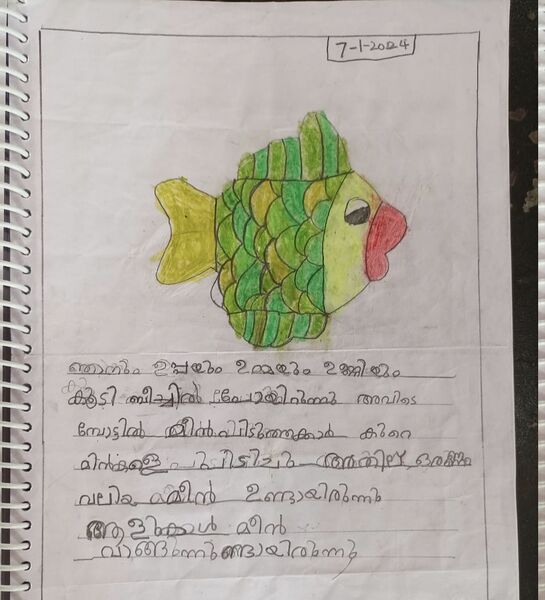 7-1-2024
ഞാനും ഉപ്പയും ഉമ്മയും ഉണ്ണിയും
കൂടി ബീച്ചിൽ പോയിരുന്നു അവിടെ
ബോട്ടിൽ മീൻപിടുത്തക്കാർ കുറെ
മിൻകളെ പിടിച്ചു അതില് ഒരു
വലിയ മീൻ ഉണ്ടായിരുന്നു
ആളുക്കൾ മീൻ
വാങ്ങുന്നുണ്ടായിരുന്നു